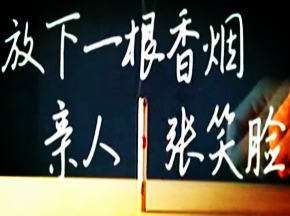 放下一根香烟
亲人 张笑脸